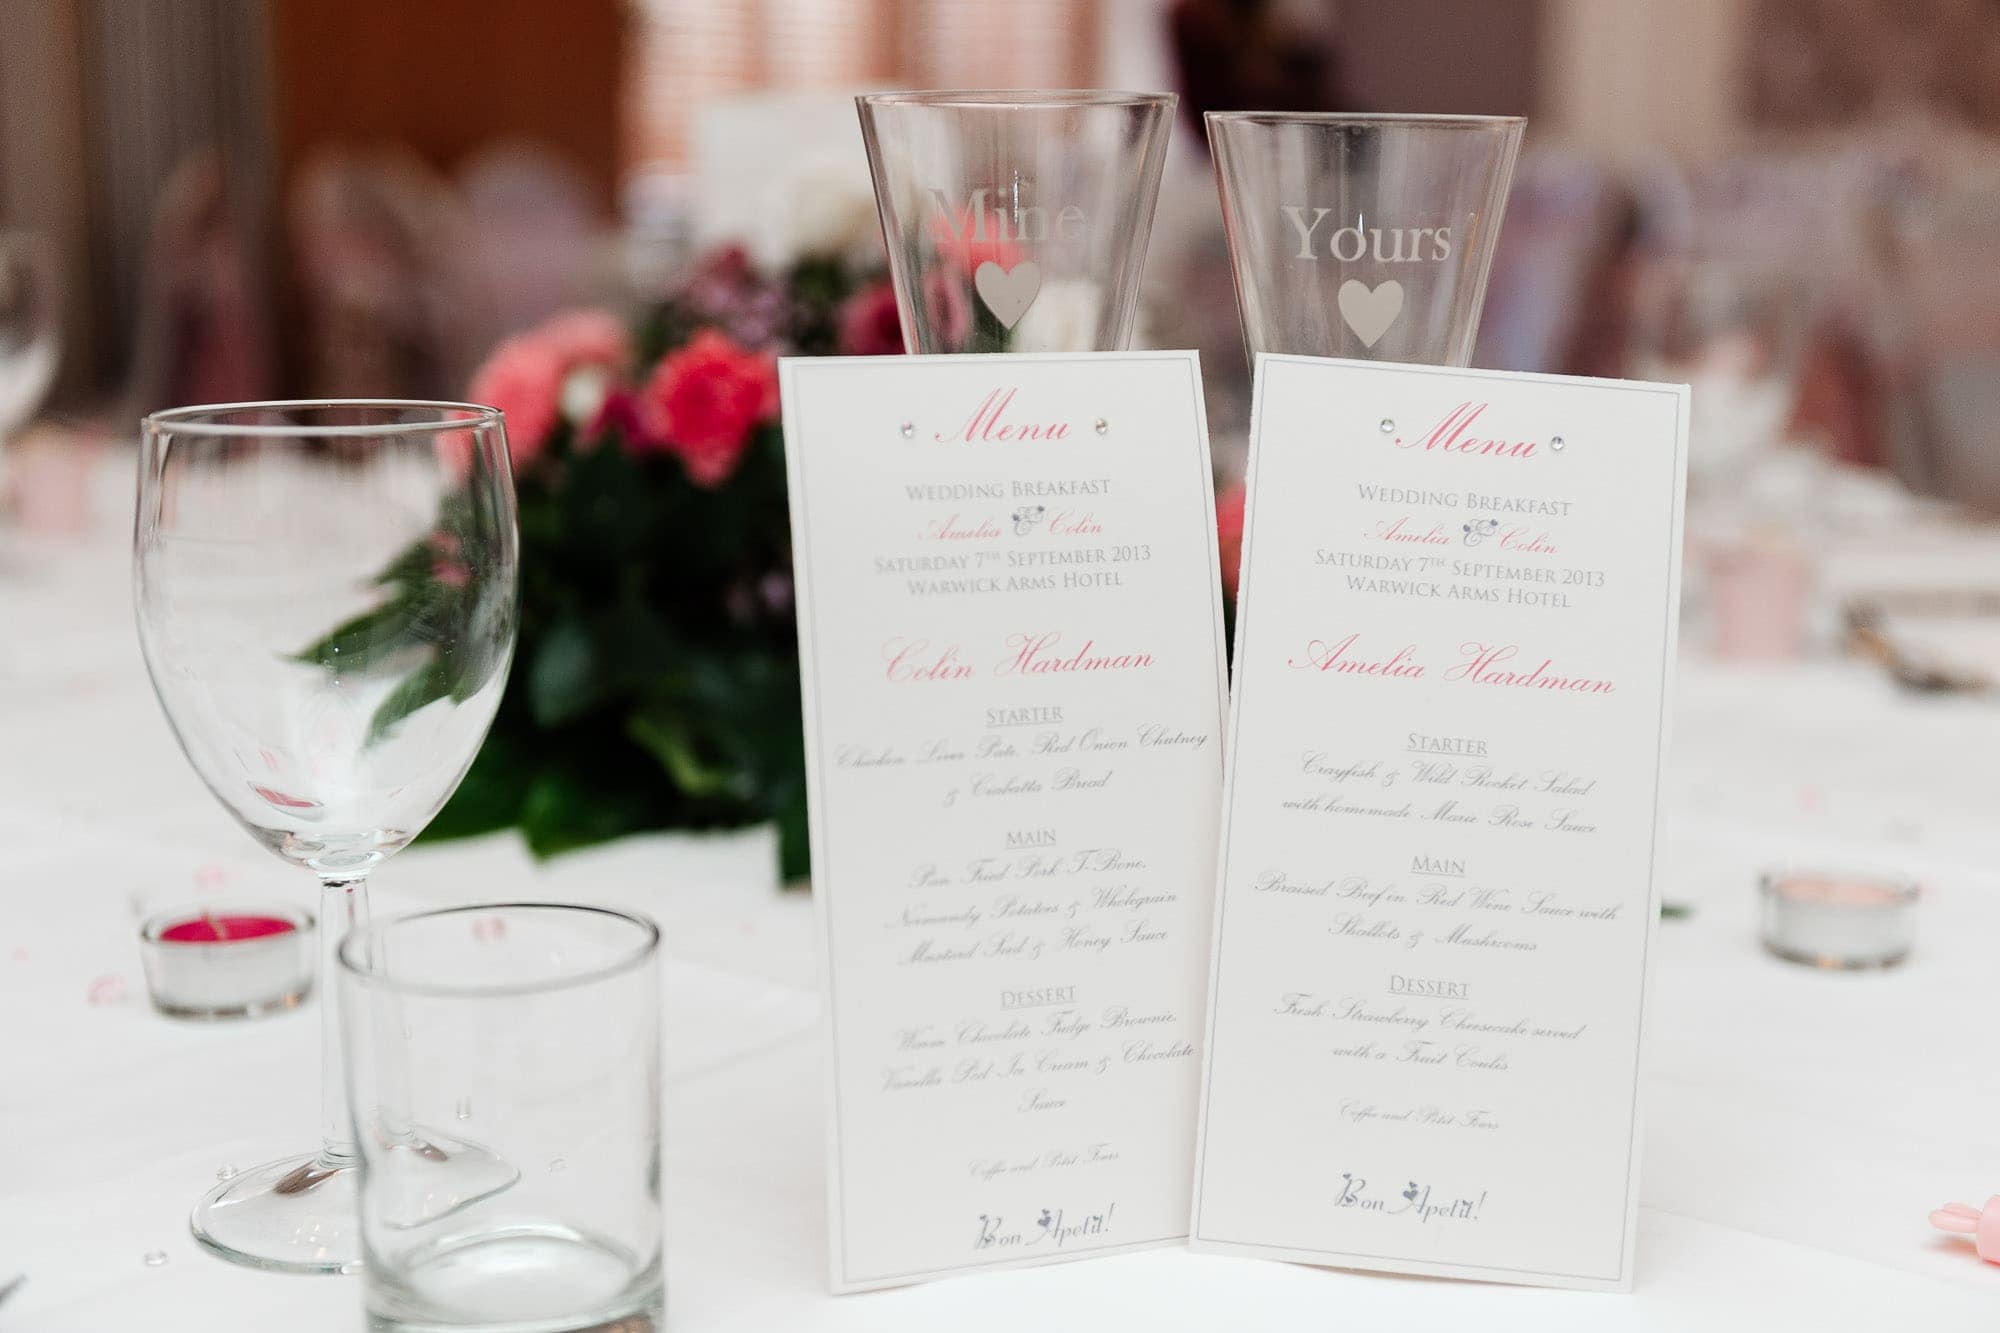 Mine
Yours
Menu
Wedding Breakfast
Amelia & Colin
Saturday 7th September 2013
Warwick Arms Hotel
Colin Hardman
Starter
Chicken Liver Pate, Red Onion Chutney
& Ciabatta Bread
Main
Pan Fried Pork T-Bone,
Normandy Potatoes & Wholegrain
Mustard Seed & Honey Sauce
Dessert
Warm Chocolate Fudge Brownie,
Vanilla Pod Ice Cream & Chocolate
Sauce
Coffee and Petit Fours
Bon Apetit!
Menu
Wedding Breakfast
Amelia & Colin
Saturday 7th September 2013
Warwick Arms Hotel
Amelia Hardman
Starter
Crayfish & Wild Rocket Salad
with homemade Marie Rose Sauce
Main
Braised Beef in Red Wine Sauce with
Shallots & Mushrooms
Dessert
Fresh Strawberry Cheesecake served
with a Fruit Coulis
Coffee and Petit Fours
Bon Apetit!